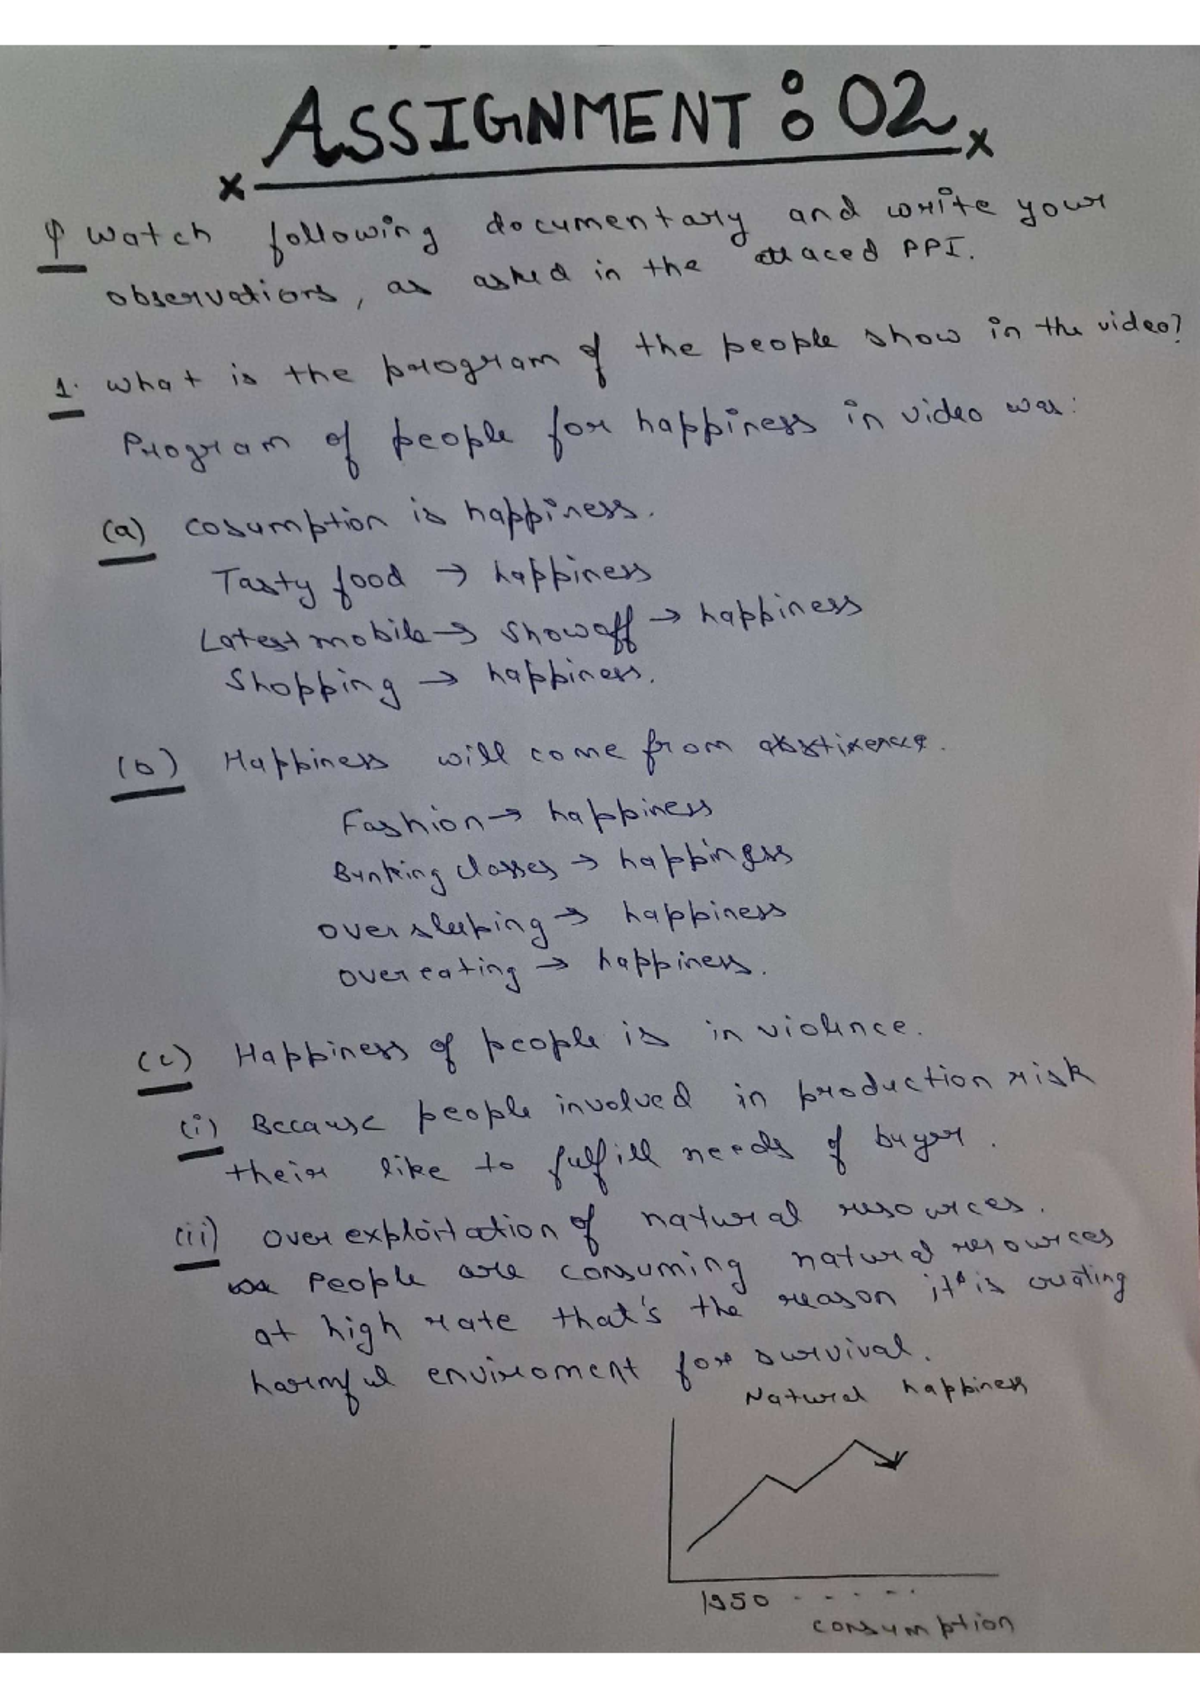 ASSIGNMENT : 02
Q Watch following documentary and write your
observations, as asked in the attaced PPI.
1. What is the program of the people show in the video?
Program of people for happiness in video was:
(a) cosumption is happiness.
Tasty food → happiness
Latest mobile → Showoff → happiness
Shopping → happiness.
(b) Happiness will come from abstinence.
Fashion → happiness
Bunking classes → happiness
Over sleeping → happiness
Over eating → happiness.
(c) Happiness of people is in violence.
(i) Because people involved in production risk
their like to fulfill needs of buyer.
(ii) Over exploitation of natural resources.
People are consuming natural resources
at high rate that's the reason it is creating
harmful enviroment for survival.
Natural happiness
1950 - - - - -
consumption